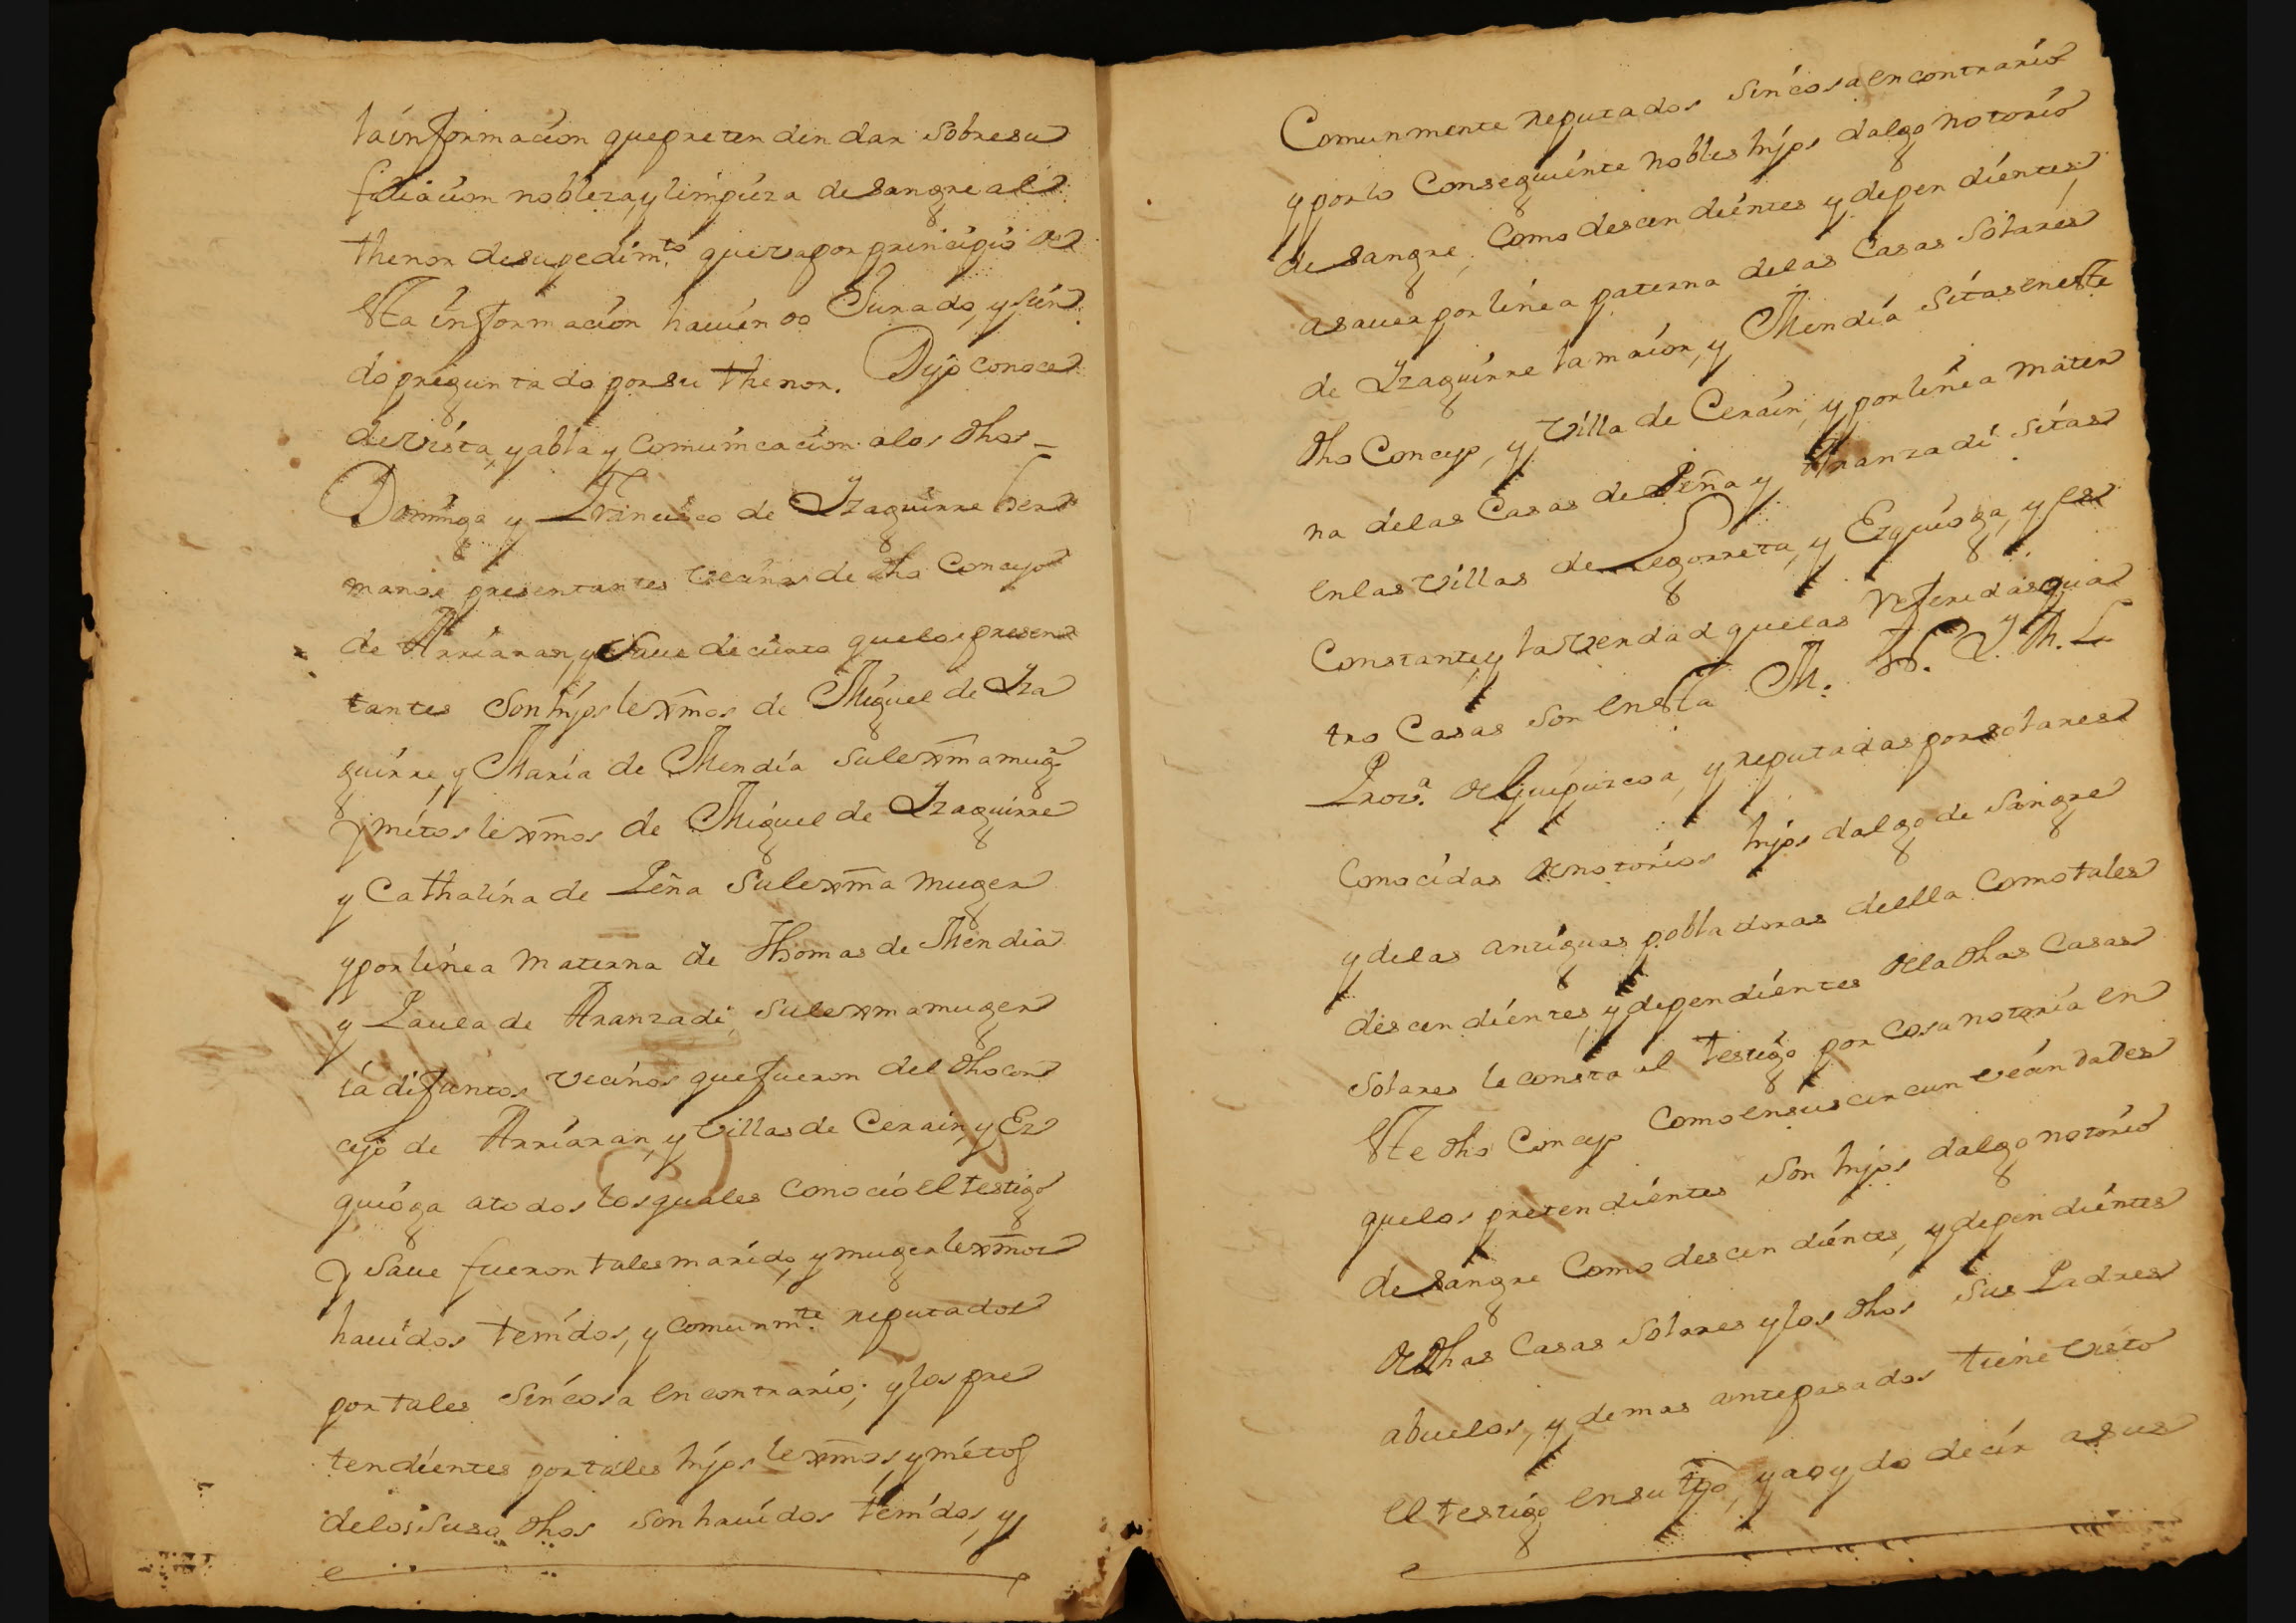 la información que pretenden dar sobre su
filiacion nobleza, y limpieza de sangre al
thenor de su pedim.to que va por principio de
esta información haviendo Jurado, y sien
do preguntado por su thenor. Dijo conoce
de vista, y abla y comunicacion a los dhos
Domingo y Francisco de Yzaguirre her
manos presentantes vecinos de dho Concejo
de Arriaran, y Saue de cierto que los presen
tantes son hijos lexmos de Miguel de Yza
guirre, y Maria de Mendia su lexma muger
Y nietos lexmos de Miguel de Yzaguirre
y Cathalina de Peña su lexma muger
y por linea materna de Thomas de Mendia
y Paula de Aranzadi, su lexma muger
ia difuntos vecinos que fueron del dho con
cejo de Arriaran, y villas de Cerain, y Ez
quioga a todos los quales conoció el testigo
Y Saue fueron tales marido, y muger lexmos
hauidos tenidos, y comunm.te reputados
por tales sin cosa en contrario; y los pre
tendientes por tales hijos lexmos, y nietos
de los suso dhos son hauidos tenidos, y
Comunmente reputados sin cosa en contrario
y por lo Consequiente nobles hijos dalgo notorios
de sangre, como descendientes y dependientes
asauer por linea paterna de las Casas Solares
de Yzaguirre la maior, y Mendia sitas en este
dho Concejo, y Villa de Cerain, y por linea mater
na de las Casas de Peña y Aranzadi sitas
en las Villas de Legorreta, y Ezquioga, y es
Constante, y la verdad que las referidas qua
tro Casas son en esta M. N. Y M. L.
Prov.a de Guipuzcoa, y reputadas por solares
Conocidas de notorios hijos dalgo de sangre
y de las antiguas pobladoras de ella Como tales
descendientes, y dependientes de la dhas Casas
Solares le consta al testigo por cosa notoria en
este dho Concejo como en sus circunvecindades
que los pretendientes son hijos dalgo notorios
de sangre como descendientes, y dependientes
de dhas Casas Solares y los dhos sus Padres
abuelos, y demas antepasados tiene visto
el testigo en su tpo, y a oydo decir a sus